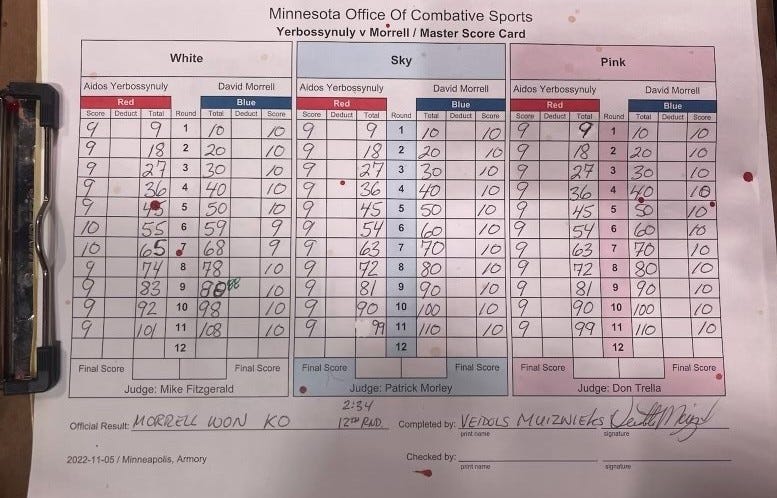 Minnesota Office Of Combative Sports
Yerbossynuly v Morrell / Master Score Card
White Sky Pink
Aidos Yerbossynuly David Morrell Aidos Yerbossynuly David Morrell Aidos Yerbossynuly David Morrell
Red Blue Red Blue Red Blue
Score Deduct Total Round Total Deduct Score Score Deduct Total Round Total Deduct Score Score Deduct Total Round Total Deduct Score
9 9 1 10 10 9 9 1 10 10 9 9 1 10 10
9 18 2 20 10 9 18 2 20 10 9 18 2 20 10
9 27 3 30 10 9 27 3 30 10 9 27 3 30 10
9 36 4 40 10 9 36 4 40 10 9 36 4 40 10
9 45 5 50 10 9 45 5 50 10 9 45 5 50 10
10 55 6 59 9 9 54 6 60 10 9 54 6 60 10
10 65 7 68 9 9 63 7 70 10 9 63 7 70 10
9 74 8 78 10 9 72 8 80 10 9 72 8 80 10
9 83 9 88 10 9 81 9 90 10 9 81 9 90 10
9 92 10 98 10 9 90 10 100 10 9 90 10 100 10
9 101 11 108 10 9 99 11 110 10 9 99 11 110 10
12 12 12
Final Score Final Score Final Score Final Score Final Score Final Score
Judge: Mike Fitzgerald Judge: Patrick Morley Judge: Don Trella
2:34
Official Result: MORRELL WON KO 12TH RND. Completed by: VEIDOLS MUIZNIEKS
print name signature
2022-11-05 / Minneapolis, Armory
Checked by:
print name signature